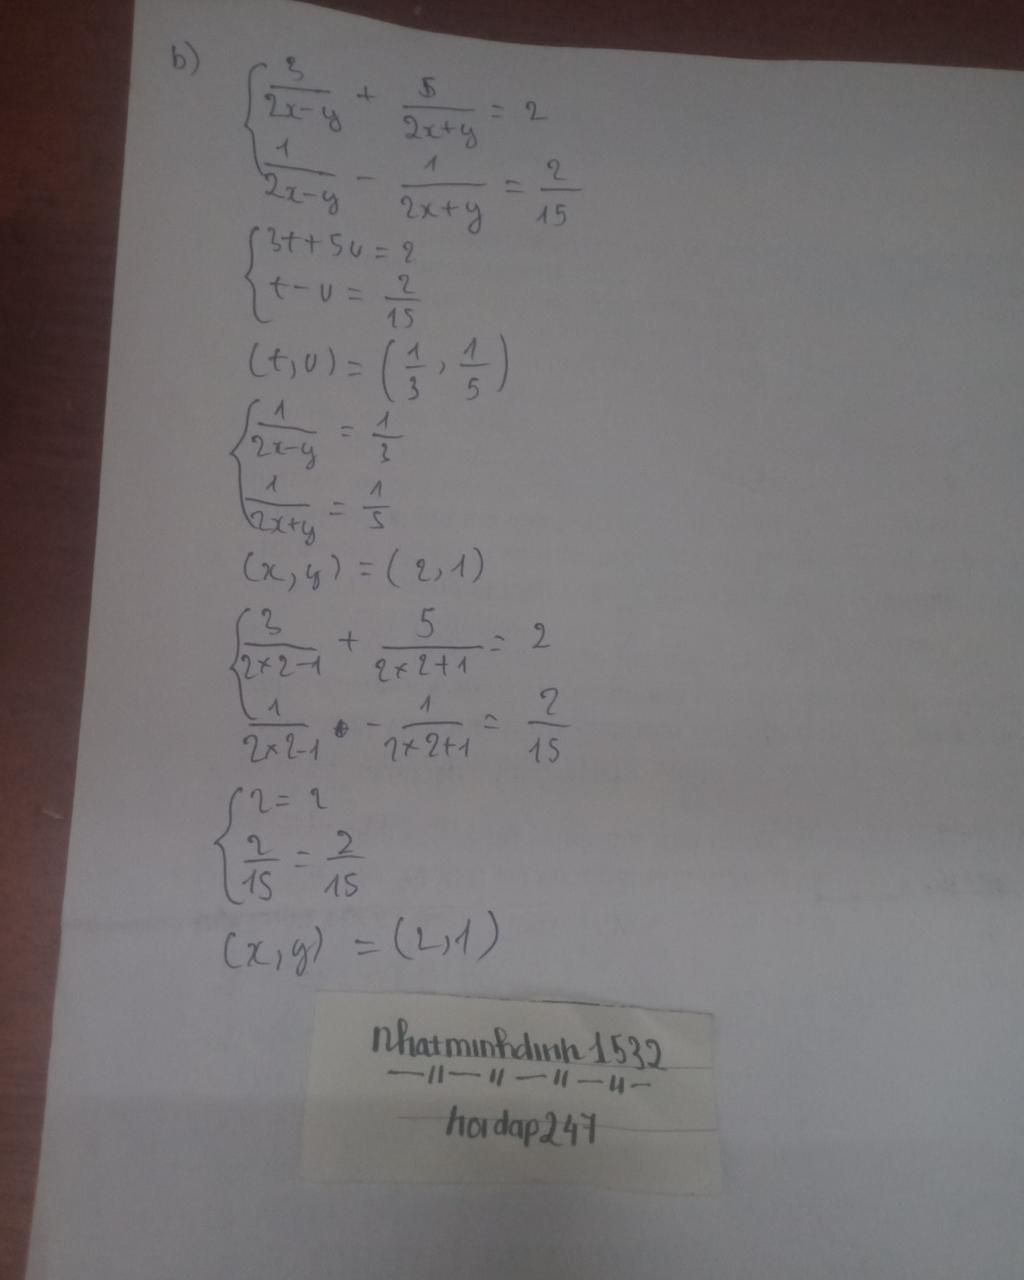 b)
{ 3/(2x-y) + 5/(2x+y) = 2
1/(2x-y) - 1/(2x+y) = 2/15
{ 3t+5u = 2
t-u = 2/15
(t,u) = (1/3, 1/5)
{ 1/(2x-y) = 1/3
1/(2x+y) = 1/5
(x,y) = (2,1)
{ 3/(2×2-1) + 5/(2×2+1) = 2
1/(2×2-1) - 1/(2×2+1) = 2/15
{ 2 = 2
2/15 = 2/15
(x,y) = (2,1)
nhatminhdinh1532
—//—//—//—//—
hoidap247